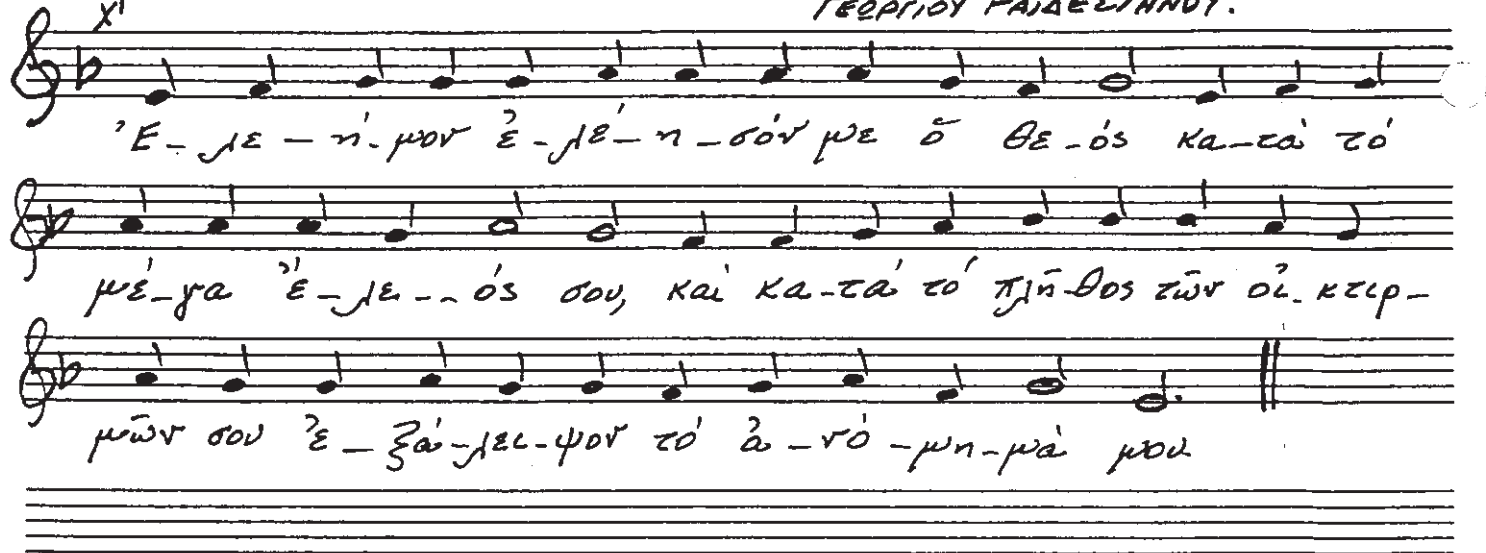 χ'
ΓΕΩΡΓΙΟΥ ΡΑΙΔΕΣΤΗΝΟΥ.
Ἐ-λε-ή-μον ἐ-λέ-η-σόν με ὁ Θε-ός κα-τά τό
μέ-γα ἔ-λε--ός σου, καί κα-τά τό πλῆ-θος τῶν οἰ-κτιρ-
μῶν σου ἐ-ξά-λει-ψον τό ἀ-νό-μη-μά μου